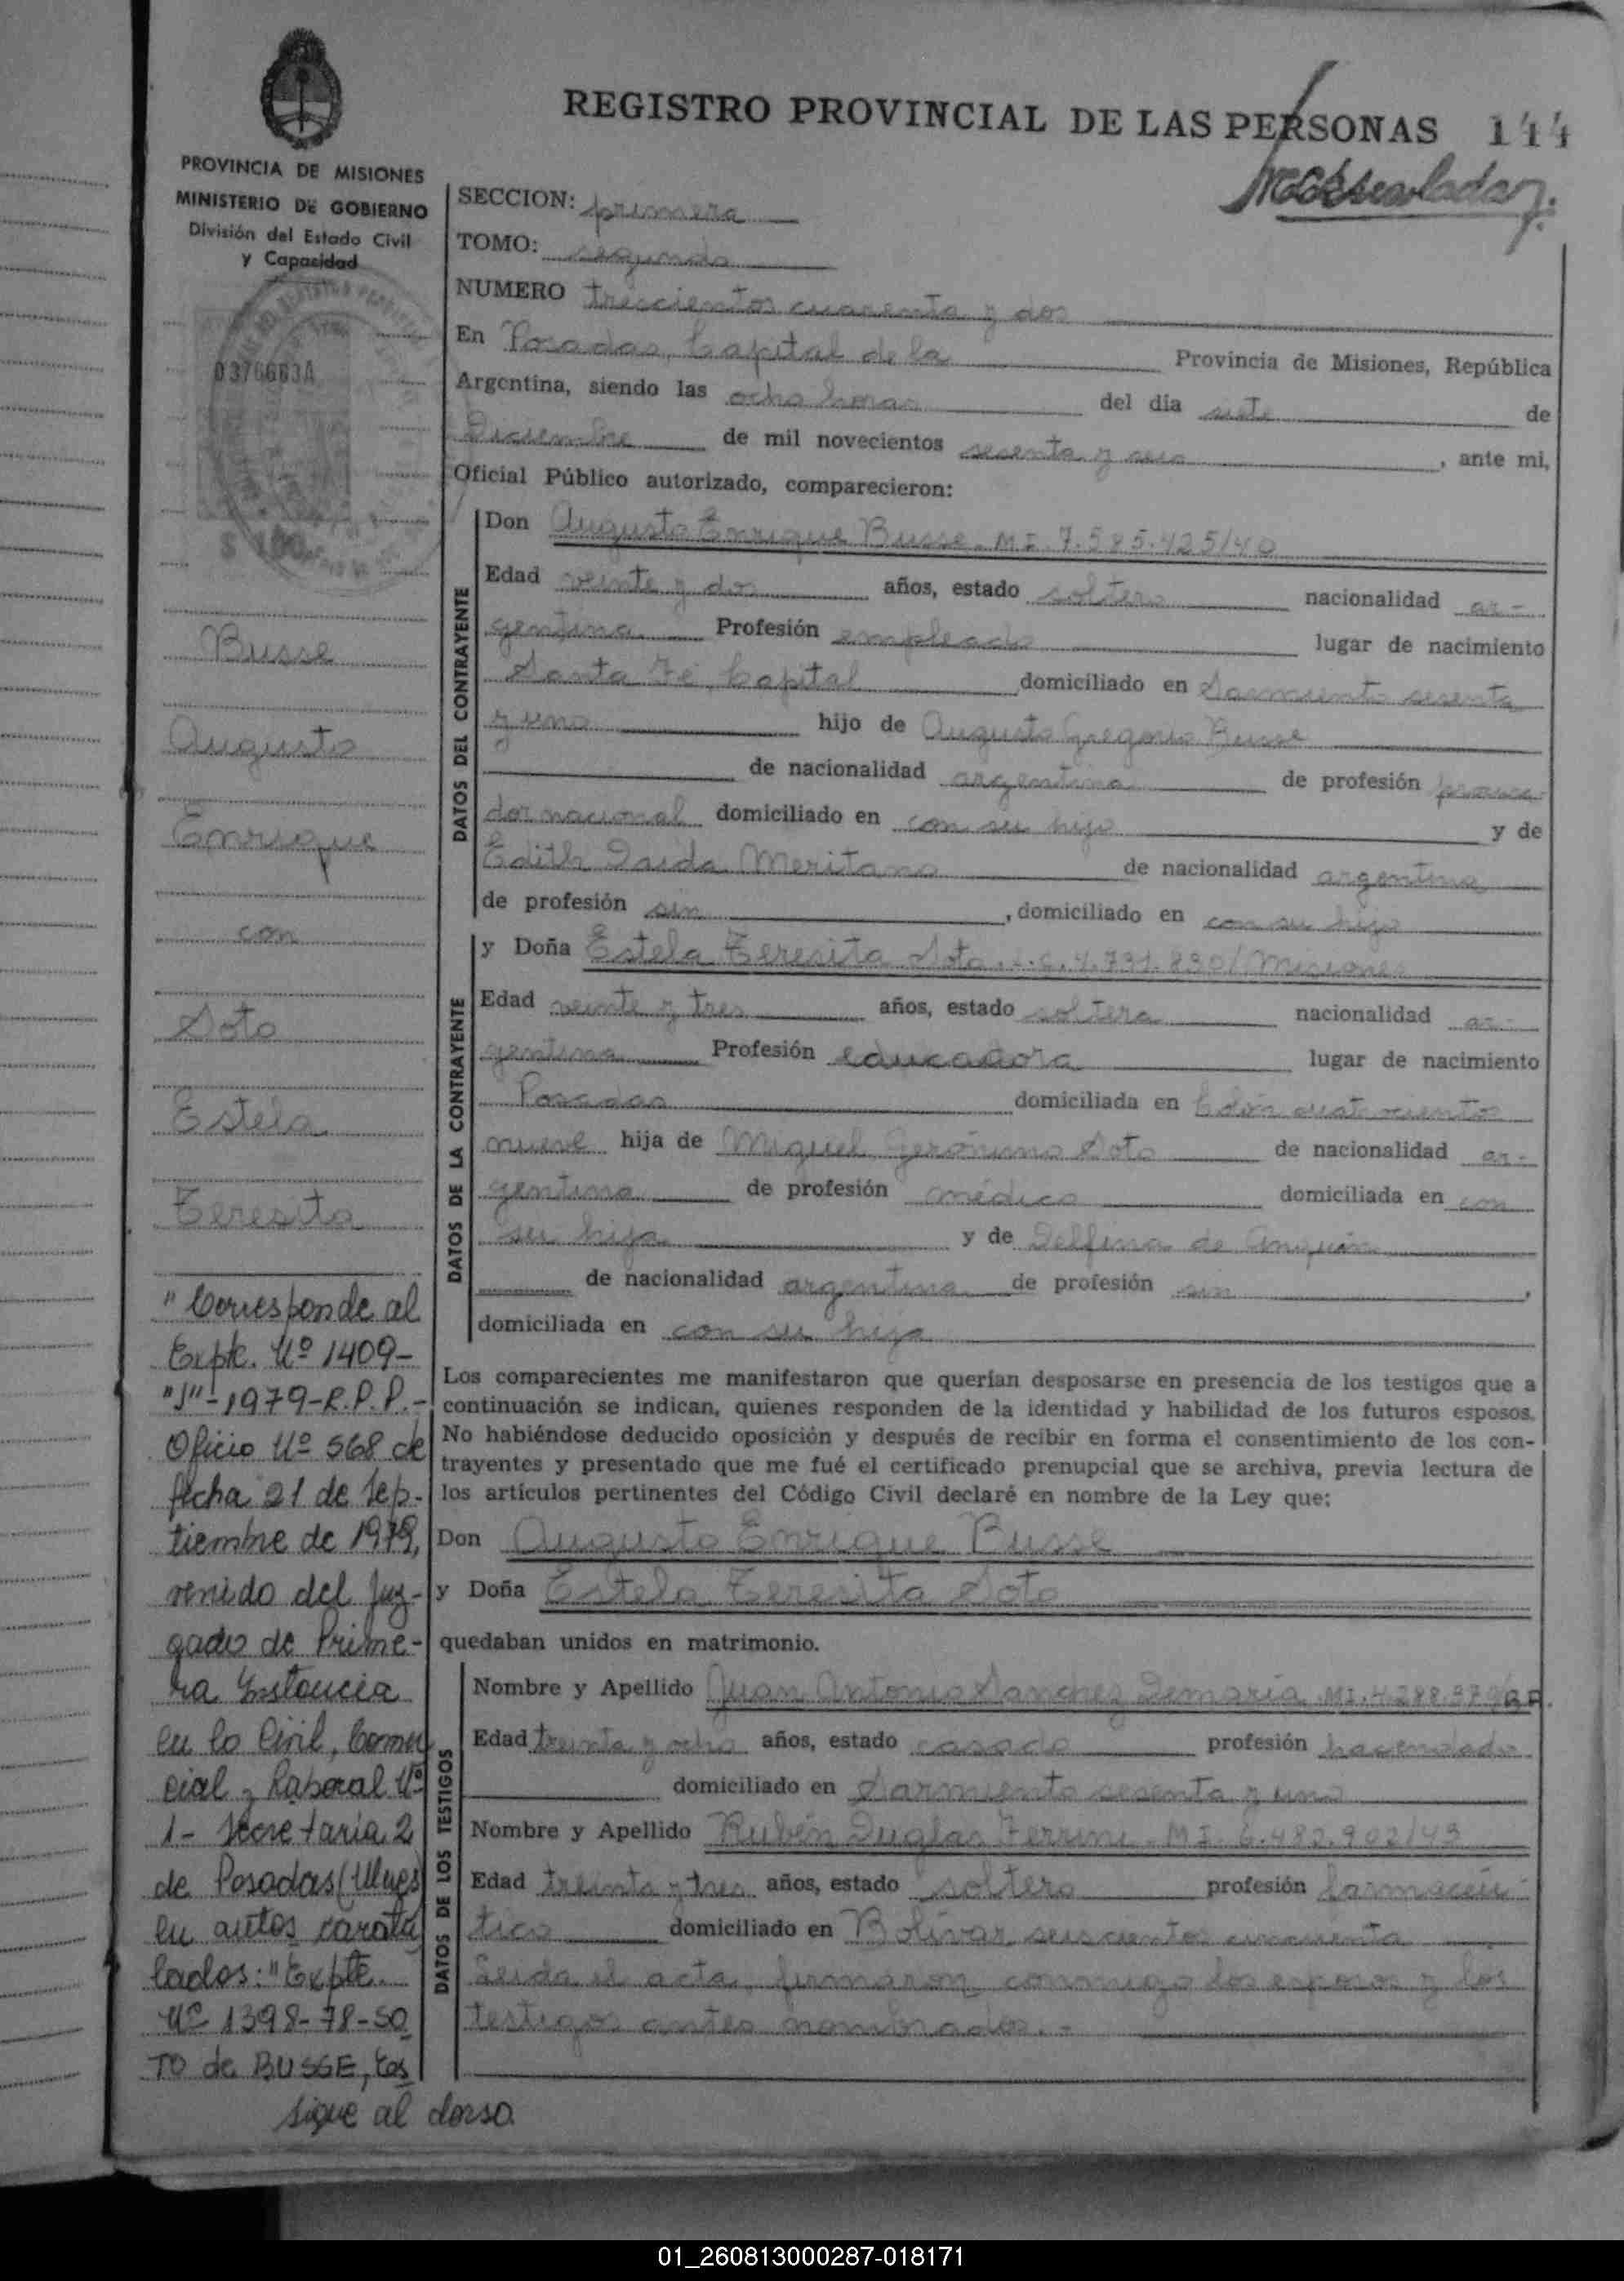 REGISTRO PROVINCIAL DE LAS PERSONAS 144
PROVINCIA DE MISIONES
MINISTERIO DE GOBIERNO
División del Estado Civil
y Capacidad
0376663A
$ 100
SECCION: primera
TOMO: segundo
NUMERO trescientos cuarenta y dos
En Posadas, Capital de la Provincia de Misiones, República
Argentina, siendo las ocho horas del día siete de
Diciembre de mil novecientos sesenta y seis, ante mi,
Oficial Público autorizado, comparecieron:
DATOS DEL CONTRAYENTE
Don Augusto Enrique Busse. M I. 7.585.425/40
Edad veinte y dos años, estado soltero nacionalidad ar-
gentina Profesión empleado lugar de nacimiento
Santa Fé, Capital domiciliado en Sarmiento sesenta
y uno hijo de Augusto Gregorio Busse
de nacionalidad argentina de profesión procura-
dor nacional domiciliado en con su hijo y de
Edith Zaida Meritano de nacionalidad argentina
de profesión sin, domiciliado en con su hijo
DATOS DE LA CONTRAYENTE
y Doña Estela Teresita Soto. L.C. 4.731.830/Misiones
Edad veinte y tres años, estado soltera nacionalidad ar-
gentina Profesión educadora lugar de nacimiento
Posadas domiciliada en Colón cuatrocientos
nueve hija de Miguel Gerónimo Soto de nacionalidad ar-
gentina de profesión médico domiciliada en con
su hija y de Delfina de Anquín
de nacionalidad argentina de profesión sin,
domiciliada en con su hija
Los comparecientes me manifestaron que querían desposarse en presencia de los testigos que a
continuación se indican, quienes responden de la identidad y habilidad de los futuros esposos.
No habiéndose deducido oposición y después de recibir en forma el consentimiento de los con-
trayentes y presentado que me fué el certificado prenupcial que se archiva, previa lectura de
los artículos pertinentes del Código Civil declaré en nombre de la Ley que:
Don Augusto Enrique Busse
y Doña Estela Teresita Soto
quedaban unidos en matrimonio.
DATOS DE LOS TESTIGOS
Nombre y Apellido Juan Antonio Sanchez Demaria. MI. 4.288.
Edad treinta y ocho años, estado casado profesión hacendado
domiciliado en Sarmiento sesenta y uno
Nombre y Apellido Rubén Duglas Ferrini. M I. 6.482.902/43
Edad treinta y tres años, estado soltero profesión farmacéu-
tico domiciliado en Bolívar seiscientos cincuenta
Leida el acta, firmaron conmigo los esposos y los
testigos antes nombrados.-
Busse
Augusto
Enrique
con
Soto
Estela
Teresita
"Corresponde al
Expte. Nº 1409-
"J"-1979-R.P.P.-
Oficio Nº 568 de
fecha 21 de Sep-
tiembre de 1979,
venido del Juz-
gado de Prime-
ra Instancia
en lo Civil, Comer
cial y Laboral Nº
1- Secretaria 2
de Posadas (Mnes)
en autos caratu
lados: "Expte.
Nº 1398-78-SO
TO de BUSSE, Es
sigue al dorso.
01_260813000287-018171